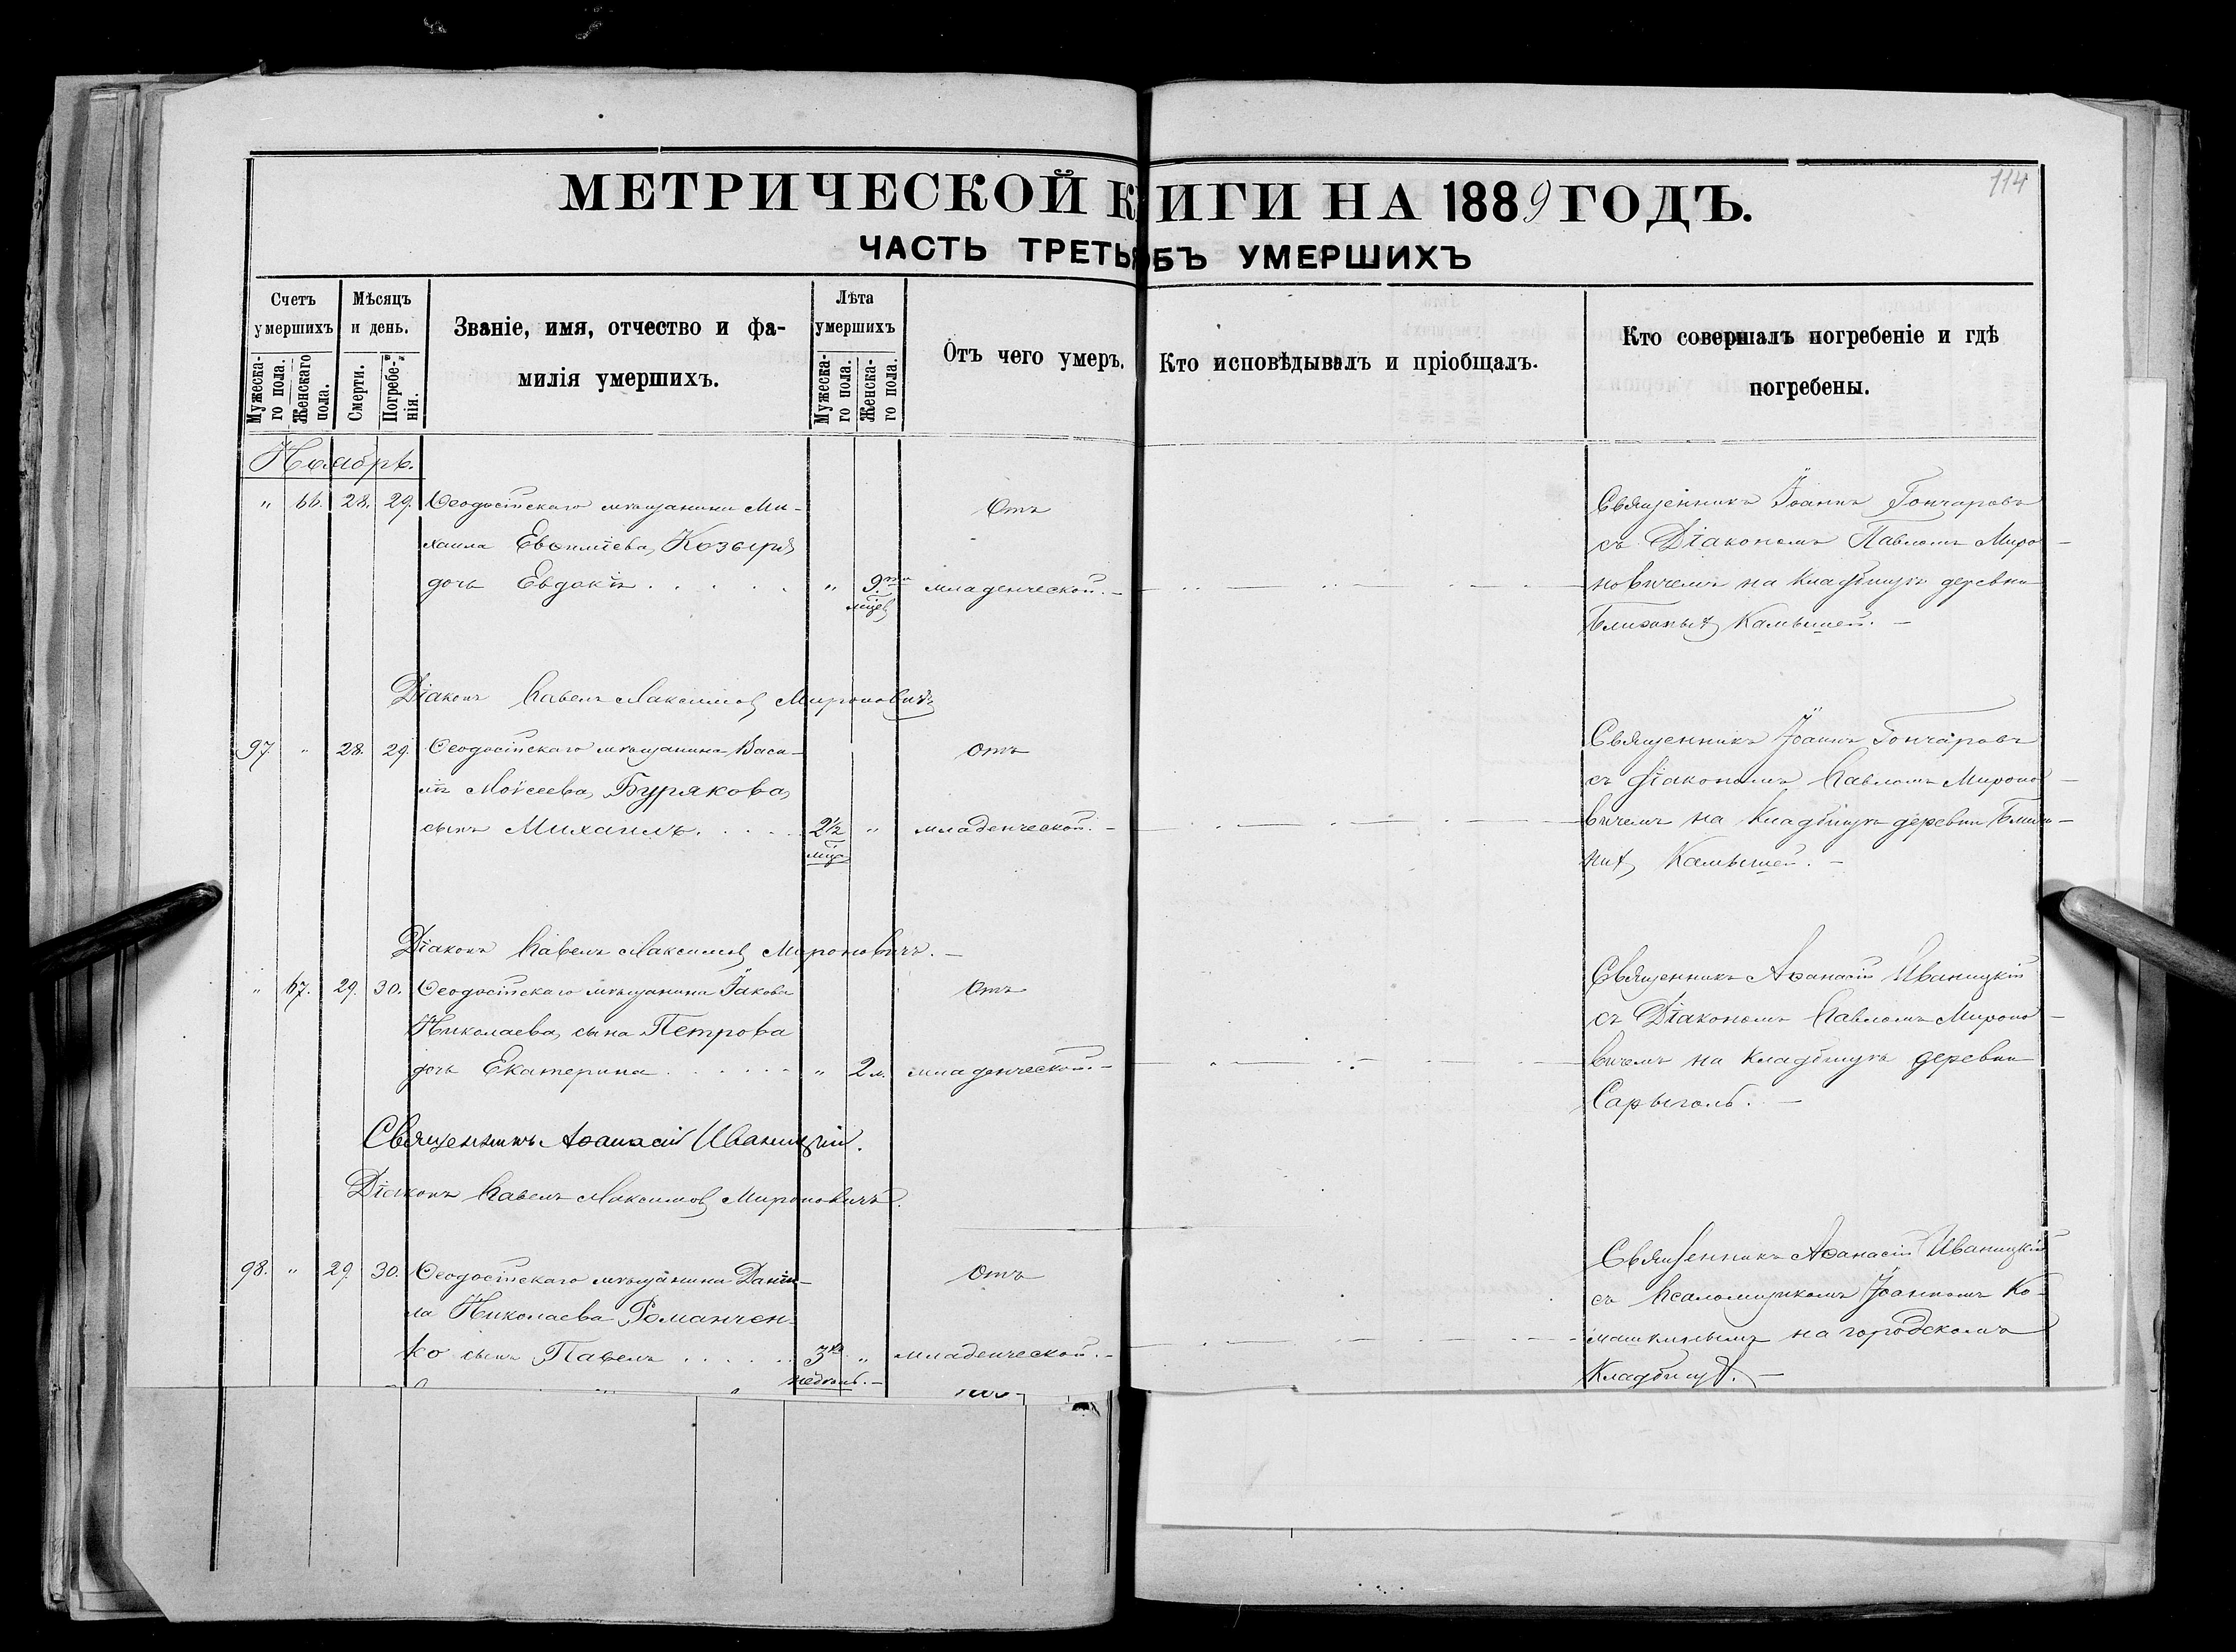 114
МЕТРИЧЕСКОЙ К ИГИ НА 1889 ГОДЪ.
ЧАСТЬ ТРЕТЬЯ ОБЪ УМЕРШИХЪ
Счетъ умершихъ
Мужеска-
го пола.
Женскаго
пола.
Мѣсяцъ и день.
Смерти.
Погребе-
нія.
Званіе, имя, отчество и фа-
милія умершихъ.
Лѣта умершихъ
Мужеска-
го пола.
Женска-
го пола.
Отъ чего умеръ.
Кто исповѣдывалъ и пріобщалъ.
Кто совершалъ погребеніе и гдѣ
погребены.
Ноябрь.
" 66. 28. 29. Ѳеодосійскаго мѣщанина Ми-
хаила Евѳиміева Козыря
дочь Евдокія . . . . . " 9ти
мцев
Отъ
младенческой. –
Священникъ Іоаннъ Гончаровъ
съ Діакономъ Павломъ Миро-
новичемъ на кладбищѣ деревни
Ближнихъ Камышей. –
Діаконъ Павелъ Максимовъ Мироновичъ
97. " 28. 29. Ѳеодосійскаго мѣщанина Васи-
лія Моѵсеева Бурякова
сынъ Михаилъ. . . . . 2½ "
мца
Отъ
младенческой. –
Священникъ Іоаннъ Гончаровъ
съ Діакономъ Павломъ Мироно-
вичемъ на кладбищѣ деревни Ближ-
нихъ Камышей. –
Діаконъ Павелъ Максимовъ Мироновичъ. –
" 67. 29. 30. Ѳеодосійскаго мѣщанина Іакова
Николаева сына Петрова
дочь Екатерина . . . . . . " 2 м.
Отъ
младенческой. –
Священникъ Аѳанасій Иваницкій
съ Діакономъ Павломъ Мироно-
вичемъ на кладбищѣ деревни
Сарыголь. –
Священникъ Аѳанасій Иваницкій.
Діаконъ Павелъ Максимовъ Мироновичъ.
98. " 29. 30. Ѳеодосійскаго мѣщанина Даніи-
ла Николаева Романчен-
ко сынъ Павелъ . . . . . 3хъ "
недѣль. –
Отъ
младенческой. –
Священникъ Аѳанасій Иваницкій
съ Псаломщикомъ Іоанномъ Ко-
машкинымъ на городскомъ
кладбищѣ. –